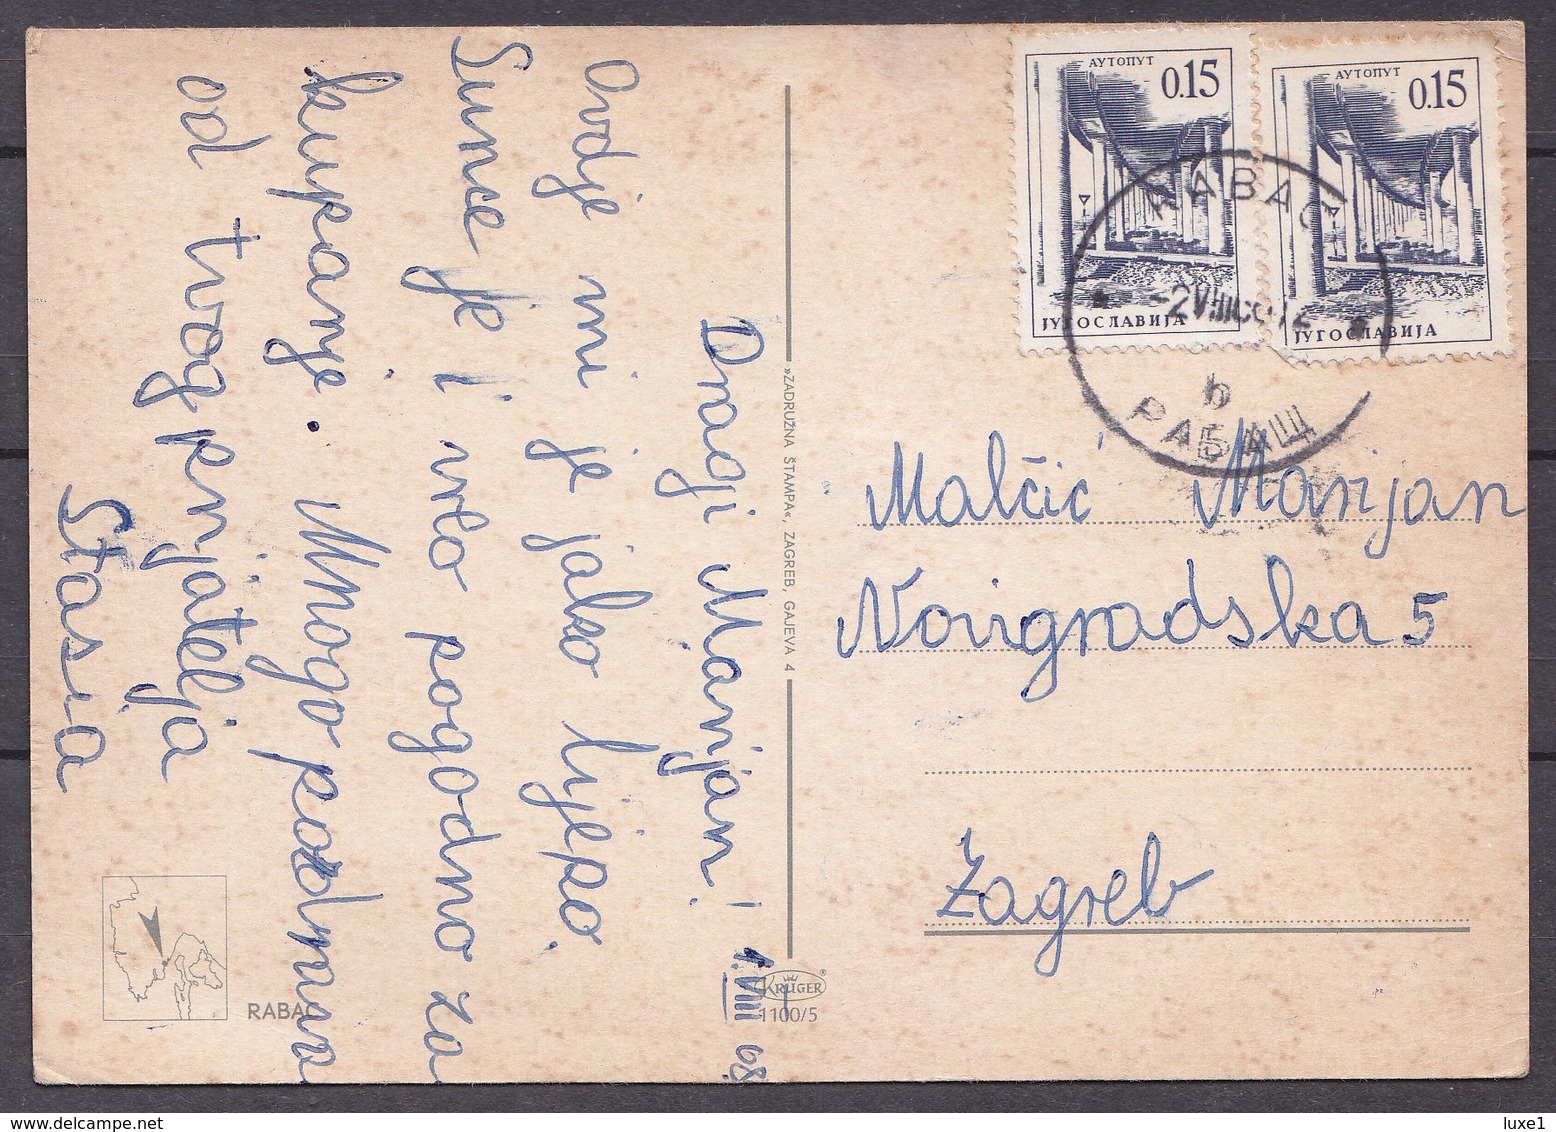 1. VIII 68.
Dragi Marijan!
Ovdje mi je jako lijepo.
Sunce je i vrlo pogodno za
kupanje. Mnogo pozdrava
od tvog prijatelja
Stasia
»ZADRUŽNA ŠTAMPA«, ZAGREB, GAJEVA 4
KRÜGER
1100/5
RABAC
АУТОПУТ
0.15
ЈУГОСЛАВИЈА
АУТОПУТ
0.15
ЈУГОСЛАВИЈА
RABAC
b
РАБАЦ
Malčić Marijan
Novigradska 5
Zagreb
www.delcampe.net
luxe1